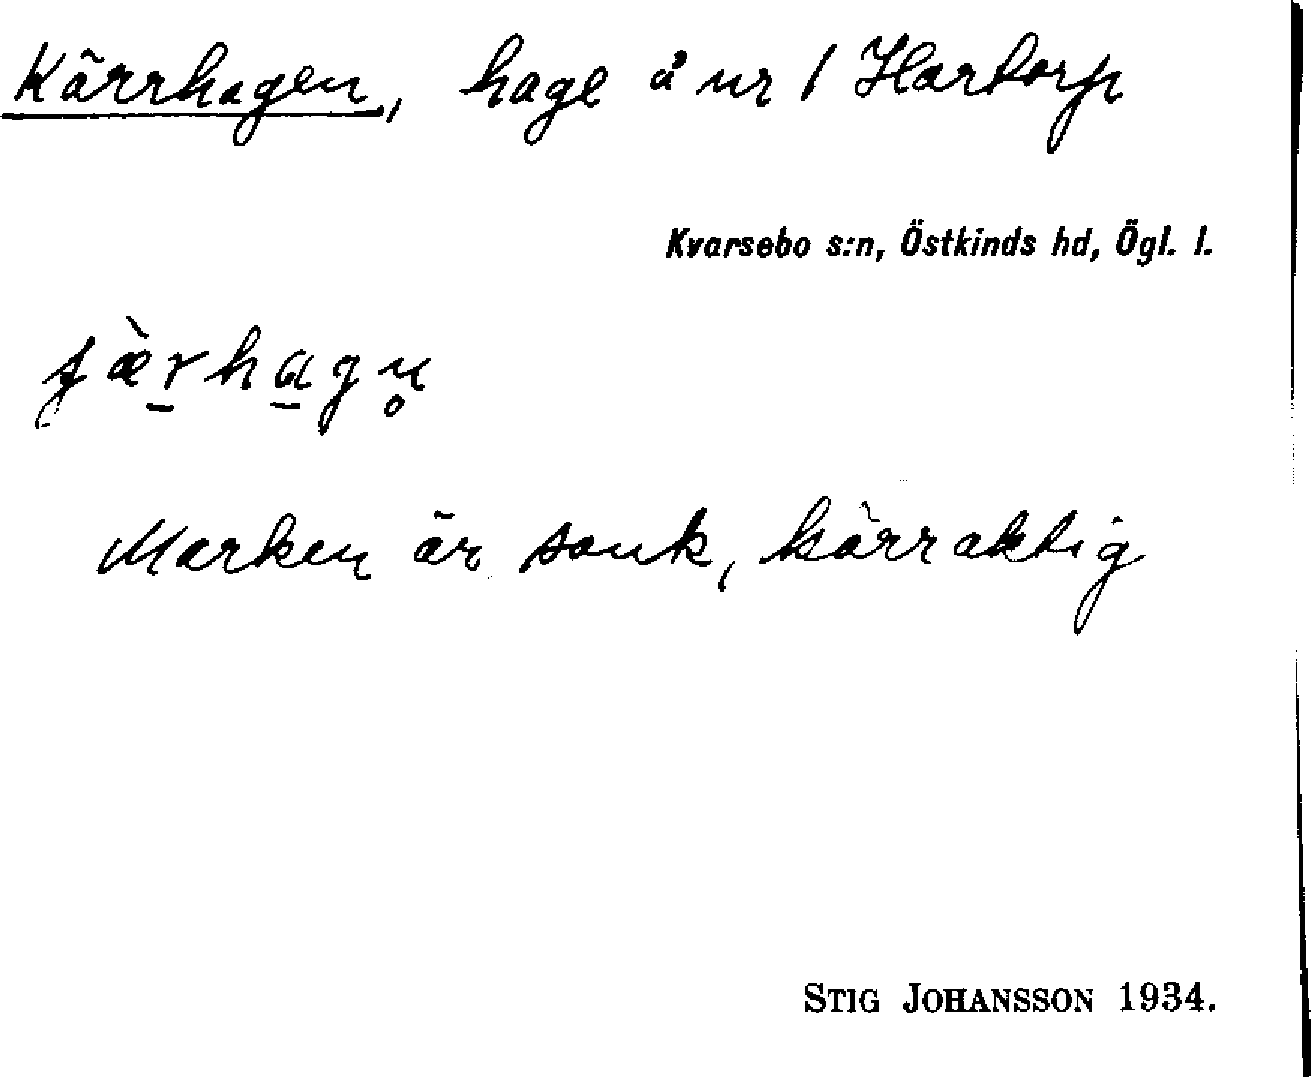 Kärrhagen, hage å nr 1 Hartorp
Kvarsebo s:n, Östkinds hd, Ögl. l.
Marken är sank, kärraktig
STIG JOHANSSON 1934.